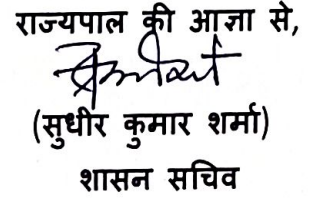 राज्यपाल की आज्ञा से,
(सुधीर कुमार शर्मा)
शासन सचिव